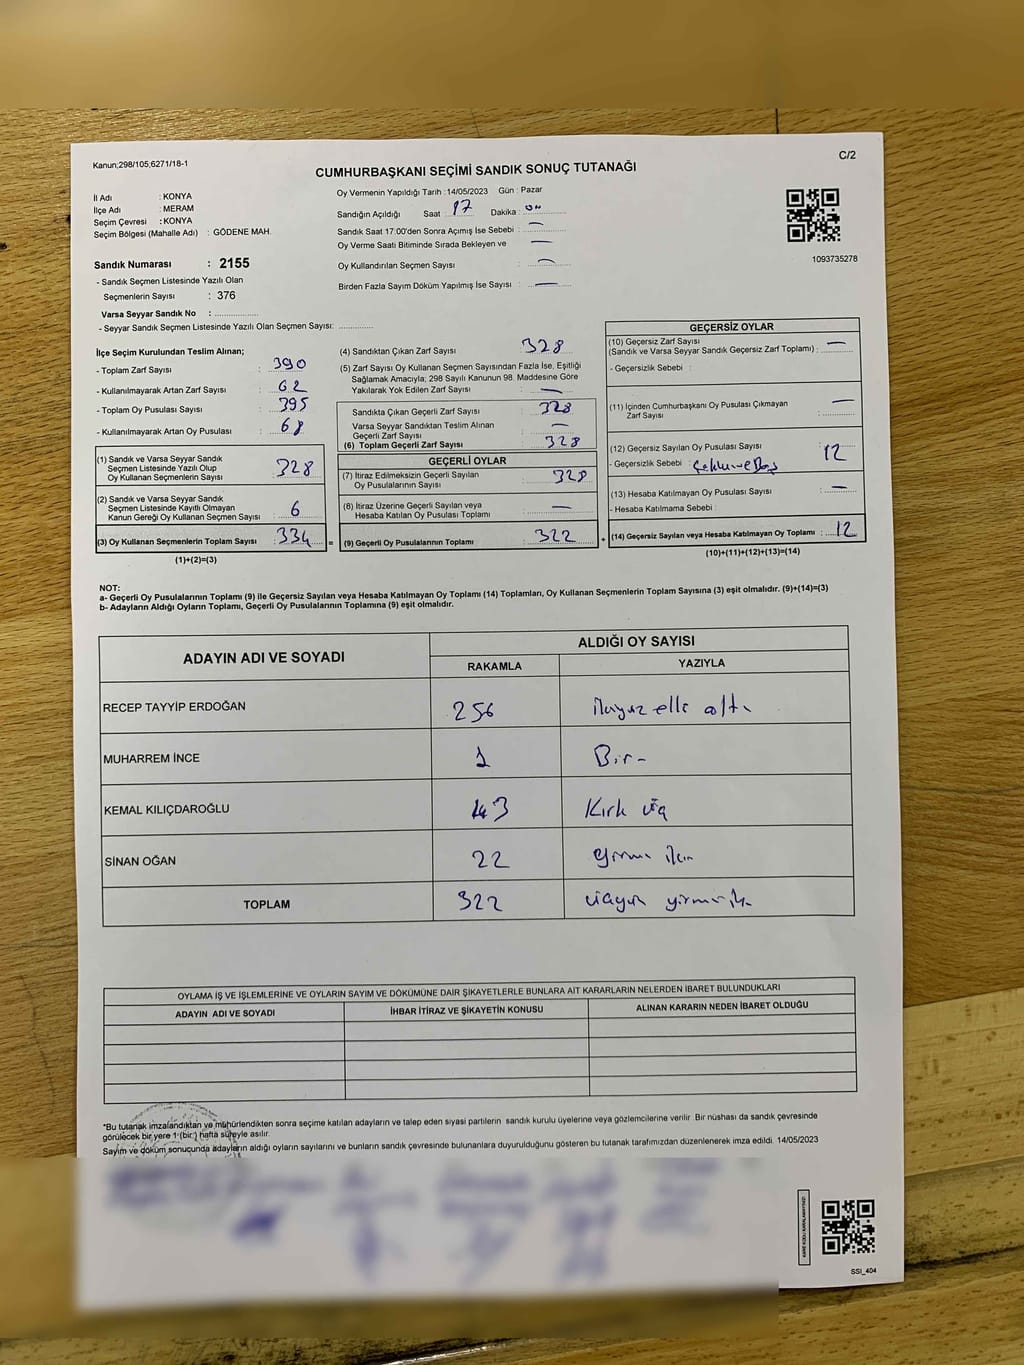 Kanun;298/105;6271/18-1
C/2
CUMHURBAŞKANI SEÇİMİ SANDIK SONUÇ TUTANAĞI
İl Adı : KONYA
İlçe Adı : MERAM
Seçim Çevresi : KONYA
Seçim Bölgesi (Mahalle Adı) : GÖDENE MAH.
Sandık Numarası : 2155
- Sandık Seçmen Listesinde Yazılı Olan
Seçmenlerin Sayısı : 376
Varsa Seyyar Sandık No :
- Seyyar Sandık Seçmen Listesinde Yazılı Olan Seçmen Sayısı:
Oy Vermenin Yapıldığı Tarih :14/05/2023 Gün : Pazar
Sandığın Açıldığı Saat 17 Dakika : on
Sandık Saat 17:00'den Sonra Açımış İse Sebebi : —
Oy Verme Saati Bitiminde Sırada Bekleyen ve —
Oy Kullandırılan Seçmen Sayısı : —
Birden Fazla Sayım Döküm Yapılmış İse Sayısı : —
1093735278
İlçe Seçim Kurulundan Teslim Alınan;
- Toplam Zarf Sayısı : 390
- Kullanılmayarak Artan Zarf Sayısı : 62
- Toplam Oy Pusulası Sayısı : 395
- Kullanılmayarak Artan Oy Pusulası : 68
(1) Sandık ve Varsa Seyyar Sandık
Seçmen Listesinde Yazılı Olup
Oy Kullanan Seçmenlerin Sayısı : 328
(2) Sandık ve Varsa Seyyar Sandık
Seçmen Listesinde Kayıtlı Olmayan
Kanun Gereği Oy Kullanan Seçmen Sayısı : 6
(3) Oy Kullanan Seçmenlerin Toplam Sayısı : 334
(1)+(2)=(3)
(4) Sandıktan Çıkan Zarf Sayısı : 328
(5) Zarf Sayısı Oy Kullanan Seçmen Sayısından Fazla İse, Eşitliği
Sağlamak Amacıyla; 298 Sayılı Kanunun 98. Maddesine Göre
Yakılarak Yok Edilen Zarf Sayısı : —
Sandıkta Çıkan Geçerli Zarf Sayısı : 328
Varsa Seyyar Sandıktan Teslim Alınan
Geçerli Zarf Sayısı : —
(6) Toplam Geçerli Zarf Sayısı : 328
GEÇERLİ OYLAR
(7) İtiraz Edilmeksizin Geçerli Sayılan
Oy Pusulalarının Sayısı : 328
(8) İtiraz Üzerine Geçerli Sayılan veya
Hesaba Katılan Oy Pusulası Toplamı : —
= (9) Geçerli Oy Pusulalarının Toplamı : 322
GEÇERSİZ OYLAR
(10) Geçersiz Zarf Sayısı
(Sandık ve Varsa Seyyar Sandık Geçersiz Zarf Toplamı) : —
- Geçersizlik Sebebi :
(11) İçinden Cumhurbaşkanı Oy Pusulası Çıkmayan
Zarf Sayısı : —
(12) Geçersiz Sayılan Oy Pusulası Sayısı : 12
- Geçersizlik Sebebi :
(13) Hesaba Katılmayan Oy Pusulası Sayısı : —
- Hesaba Katılmama Sebebi :
+ (14) Geçersiz Sayılan veya Hesaba Katılmayan Oy Toplamı : 12
(10)+(11)+(12)+(13)=(14)
NOT:
a- Geçerli Oy Pusulalarının Toplamı (9) ile Geçersiz Sayılan veya Hesaba Katılmayan Oy Toplamı (14) Toplamları, Oy Kullanan Seçmenlerin Toplam Sayısına (3) eşit olmalıdır. (9)+(14)=(3)
b- Adayların Aldığı Oyların Toplamı, Geçerli Oy Pusulalarının Toplamına (9) eşit olmalıdır.
ADAYIN ADI VE SOYADI
ALDIĞI OY SAYISI
RAKAMLA YAZIYLA
RECEP TAYYİP ERDOĞAN 256 ikiyüz elli altı
MUHARREM İNCE 1 Bir-
KEMAL KILIÇDAROĞLU 43 Kırk üç
SİNAN OĞAN 22
TOPLAM 322 üçyüz yirmi iki
OYLAMA İŞ VE İŞLEMLERİNE VE OYLARIN SAYIM VE DÖKÜMÜNE DAİR ŞİKAYETLERLE BUNLARA AİT KARARLARIN NELERDEN İBARET BULUNDUKLARI
ADAYIN ADI VE SOYADI İHBAR İTİRAZ VE ŞİKAYETİN KONUSU ALINAN KARARIN NEDEN İBARET OLDUĞU
*Bu tutanak imzalandıktan ve mühürlendikten sonra seçime katılan adayların ve talep eden siyasi partilerin sandık kurulu üyelerine veya gözlemcilerine verilir .Bir nüshası da sandık çevresinde
görülecek bir yere 1 (bir) hafta süreyle asılır.
Sayım ve döküm sonucunda adayların aldığı oyların sayılarını ve bunların sandık çevresinde bulunanlara duyurulduğunu gösteren bu tutanak tarafımızdan düzenlenerek imza edildi. 14/05/2023
KARE KODU KARALAMAYINIZ!
SSI_404